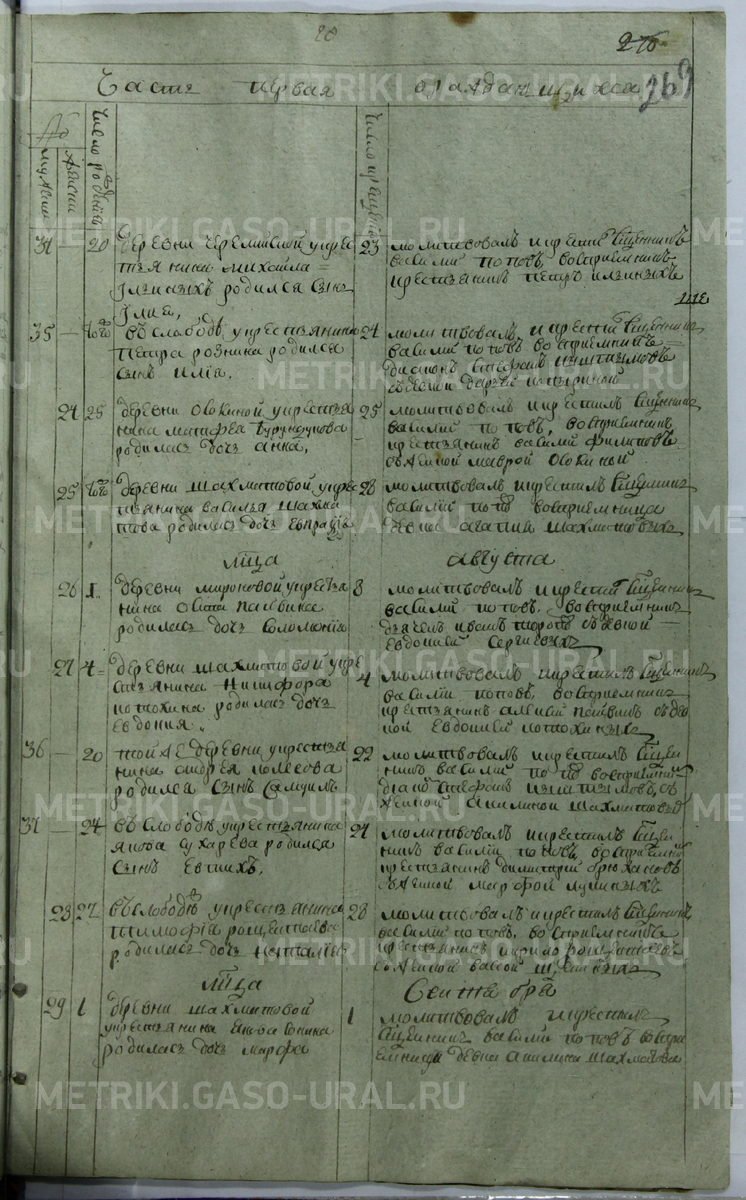 20
Часть первая о раждающихся
269
число родившихся
число крещения
34 — 20 деревни черемисской у крес
тьянина михаила
Ильиныхъ родился сынъ
Илия,
23 молитвовалъ и крестилъ священникъ
василий поповъ, восприемникъ
крестьянинъ петръ ильиныхъ
35 — того въ слободе у крестьянина
петра розника родился
сынъ илиа.
24 молитвовалъ и крестилъ священникъ
василий поповъ восприемникъ
диаконъ стефанъ
24 25 деревни овокиной у крестья
нина матфея бурундукова
родилась дочь анна,
25 молитвовалъ и крестилъ священникъ
василий поповъ, восприемникъ
крестьянинъ василий филиповъ
с женой маврой
25 того деревни шахматовой у крес
тьянина василья шахма
това родилась дочь евпраксия
28 молитвовалъ и крестилъ священникъ
василий поповъ восприемница
девка агапия шахматовыхъ
м̃ца августа
26 1 деревни мироновой у крестья
нина
родилась дочь соломония
3 молитвовалъ и крестилъ священникъ
василий поповъ, восприемникъ
дьячекъ иванъ с женой
евдокией сергиевыхъ
27 4 деревни шахматовой у кре
стьянина никифора
потохина родилась дочь
евдокия.
4 молитвовалъ и крестилъ священникъ
василий поповъ, восприемникъ
крестьянинъ алексий с дев
кой евдокией потохиныхъ
36 — 20 той же деревни у крестья
нина андрея колесова
родился сынъ самуилъ
22 молитвовалъ и крестилъ священ
никъ василий поповъ восприемникъ
диаконъ стефанъ с
женой акилиной шахматовой
37 — 24 въ слободе у крестьянина
якова сухарева родился
сынъ евтихъ.
24 молитвовалъ и крестилъ священ
никъ василий поповъ, восприемникъ
крестьянинъ димитрий брюхановъ
с женой марфой
28 27 въ слободе у крестьянина
тимофея рощектаева
родилась дочь наталия
28 молитвовалъ и крестилъ священникъ
василий поповъ, восприемникъ
крестьянинъ рощектаевъ
с женой
м̃ца Сентября
29 1 деревни шахматовой
у крестьянина
родилась дочь марфа
1 молитвовалъ и крестилъ
священникъ василий поповъ воспри
емница девка акилина шахматова
METRIKI.GASO-URAL.RU